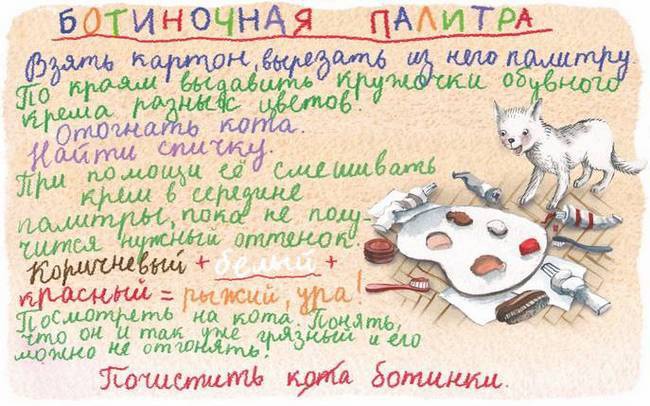 БОТИНОЧНАЯ ПАЛИТРА
Взять картон, вырезать из него палитру.
По краям выдавить кружочки обувного
крема разных цветов.
Отогнать кота.
Найти спичку.
При помощи её смешивать
крем в середине
палитры, пока не полу-
чится нужный оттенок.
Коричневый + белый +
красный = рыжий, ура!
Посмотреть на кота. Понять,
что он и так уже грязный и его
можно не отгонять!
Почистить кота ботинки.